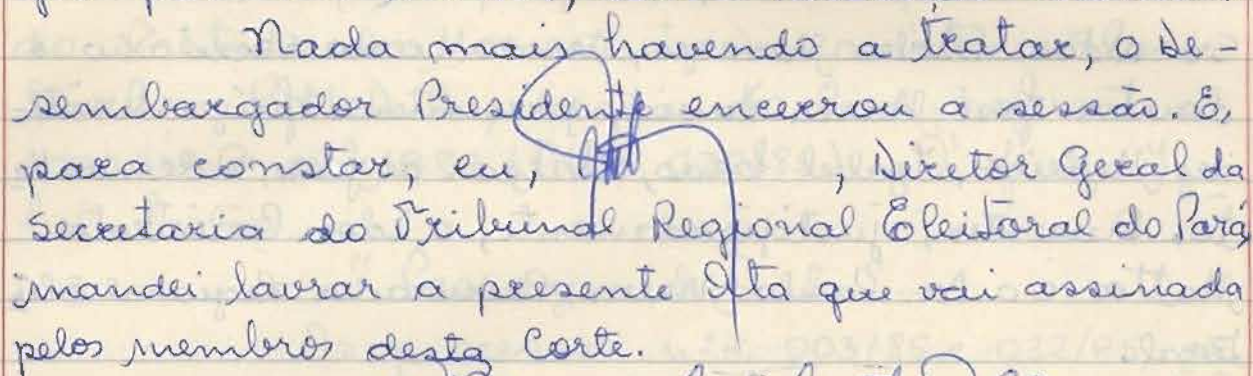 Nada mais havendo a tratar, o De-
sembargador Presidente encerrou a sessão. E,
para constar, eu, , Diretor Geral da
Secretaria do Tribunal Regional Eleitoral do Pará,
mandei lavrar a presente Ata que vai assinada
pelos membros desta Corte.